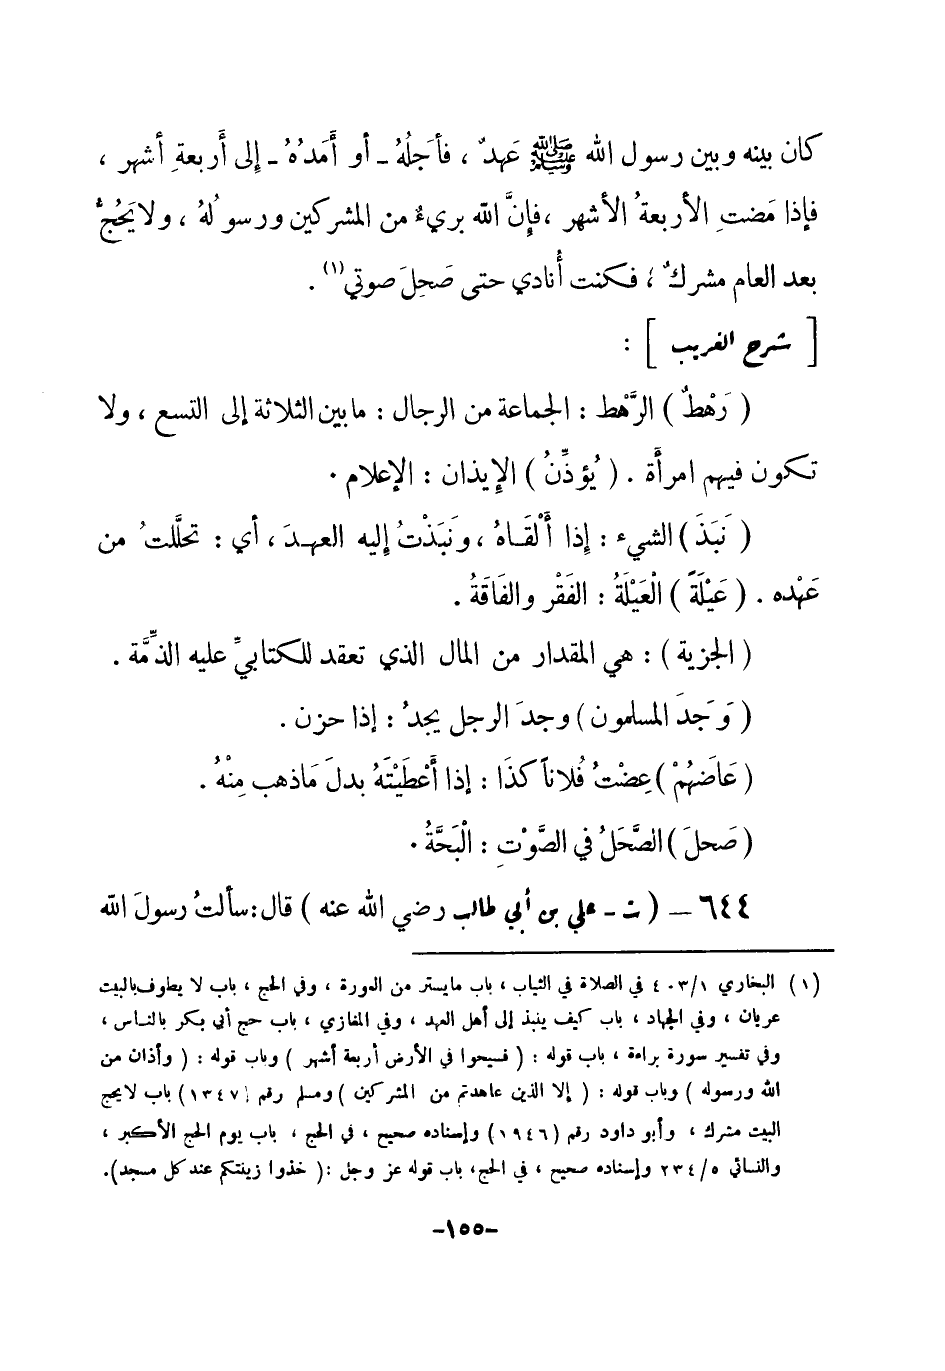 كان بينه وبين رسول الله ﷺ عَهدٌ ، فأَجلُهُ ـ أو أَمَدُهُ ـ إلى أَربعةِ أشهر ،
فإذا مَضتِ الأربعةُ الأشهر ، فإنَّ الله بريءٌ من المشركين ورسولُهُ ، ولا يَحُجُّ
بعد العام مشركٌ ، فكنت أُنادي حتى صَحِلَ صوتي(١) .
[ شرح الغريب ] :
( رَهْطٌ ) الرَّهْط : الجماعة من الرجال : ما بين الثلاثة إلى التسع ، ولا
تكون فيهم امرأَة . ( يُؤذِّنُ ) الإيذان : الإعلام .
( نَبَذَ ) الشيء : إذا أَلْقَاهُ ، ونَبَذْتُ إليه العهدَ ، أي : تحلَّلتُ من
عَهْده . ( عَيْلَةً ) الْعَيْلَةُ : الفَقْر والفَاقَةُ .
( الجزية ) : هي المقدار من المال الذي تعقد للكتابيِّ عليه الذِّمَّة .
( وَجَدَ المسلمون ) وجدَ الرجل يجدُ : إذا حزن .
( عَاضَهُمْ ) عِضْتُ فُلاناً كذَا : إذا أَعْطَيْتَهُ بدلَ مَاذهب مِنْهُ .
( صَحلَ ) الصَّحَلُ في الصَّوْتِ : الْبَحَّةُ .
٦٤٤ – ( ت - علي بن أبي طالب رضي الله عنه ) قال : سألتُ رسولَ الله
(١) البخاري ٤٠٣/١ في الصلاة في الثياب ، باب مايستر من العورة ، وفي الحج ، باب لا يطوف بالبيت
عريان ، وفي الجهاد ، باب كيف ينبذ إلى أهل العهد ، وفي المغازي ، باب حج أبي بكر بالناس ،
وفي تفسير سورة براءة ، باب قوله : ( فسيحوا في الأرض أربعة أشهر ) وباب قوله : ( وأذان من
الله ورسوله ) وباب قوله : ( إلا الذين عاهدتم من المشركين ) ومسلم رقم (١٣٤٧) باب لايحج
البيت مشرك ، وأبو داود رقم (١٩٤٦) وإسناده صحيح ، في الحج ، باب يوم الحج الأكبر ،
والنسائي ٢٣٤/٥ وإسناده صحيح ، في الحج ، باب قوله عز وجل : ( خذوا زينتكم عند كل مسجد ) .
-١٥٥-